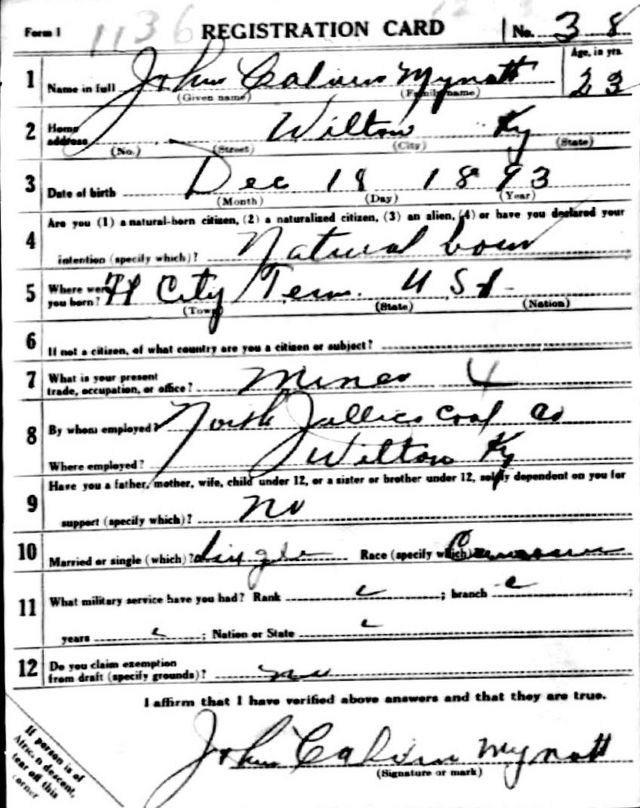 Form 1 1136 REGISTRATION CARD No. 38
1 Name in full John Calvin Mynatt Age, in yrs. 23
(Given name) (Family name)
2 Home address Wilton Ky
(No.) (Street) (City) (State)
3 Date of birth Dec 18 1893
(Month) (Day) (Year)
4 Are you (1) a natural-born citizen, (2) a naturalized citizen, (3) an alien, (4) or have you declared your
intention (specify which)? Natural born
5 Where were you born? City Tenn. USA
(Town) (State) (Nation)
6 If not a citizen, of what country are you a citizen or subject?
7 What is your present
trade, occupation, or office? Miner 4
8 By whom employed? North Jellico Coal Co
Where employed? Wilton Ky
9 Have you a father, mother, wife, child under 12, or a sister or brother under 12, solely dependent on you for
support (specify which)? No
10 Married or single (which)? Single Race (specify which)
11 What military service have you had? Rank ; branch ;
years ; Nation or State
12 Do you claim exemption
from draft (specify grounds)? No
I affirm that I have verified above answers and that they are true.
John Calvin Mynatt
(Signature or mark)
If person is of
African descent,
tear off this
corner